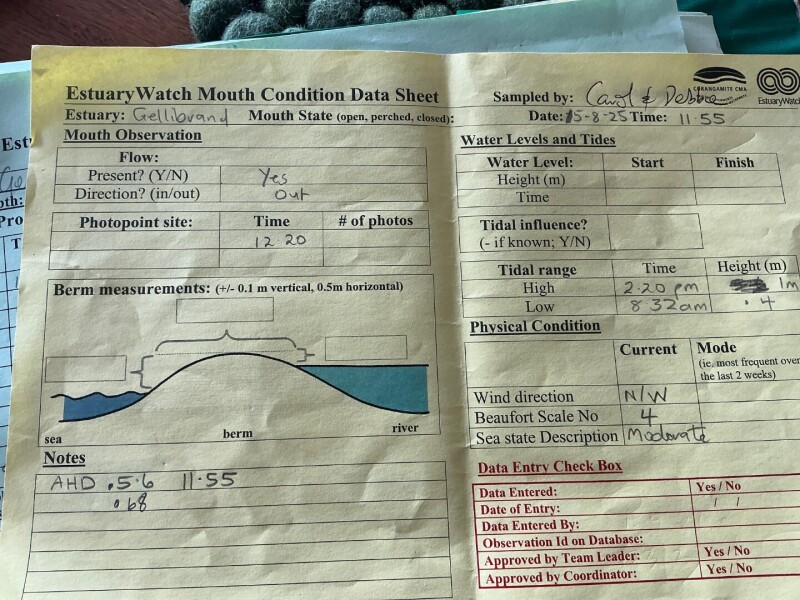 EstuaryWatch Mouth Condition Data Sheet
Sampled by: Carol & Debbie
CORANGAMITE CMA
EstuaryWatch
Estuary: Gellibrand Mouth State (open, perched, closed):
Date: 15-8-25 Time: 11.55
Mouth Observation
Flow:
Present? (Y/N) Yes
Direction? (in/out) Out
Photopoint site: Time # of photos
12.20
Berm measurements: (+/- 0.1 m vertical, 0.5m horizontal)
sea berm river
Notes
AHD .5.6 11.55
.68
Water Levels and Tides
Water Level: Start Finish
Height (m)
Time
Tidal influence?
(- if known; Y/N)
Tidal range Time Height (m)
High 2.20 pm 1m
Low 8 32am .4
Physical Condition
Current Mode
(ie. most frequent over
the last 2 weeks)
Wind direction N/W
Beaufort Scale No 4
Sea state Description Moderate
Data Entry Check Box
Data Entered: Yes / No
Date of Entry: / /
Data Entered By:
Observation Id on Database:
Approved by Team Leader: Yes / No
Approved by Coordinator: Yes / No